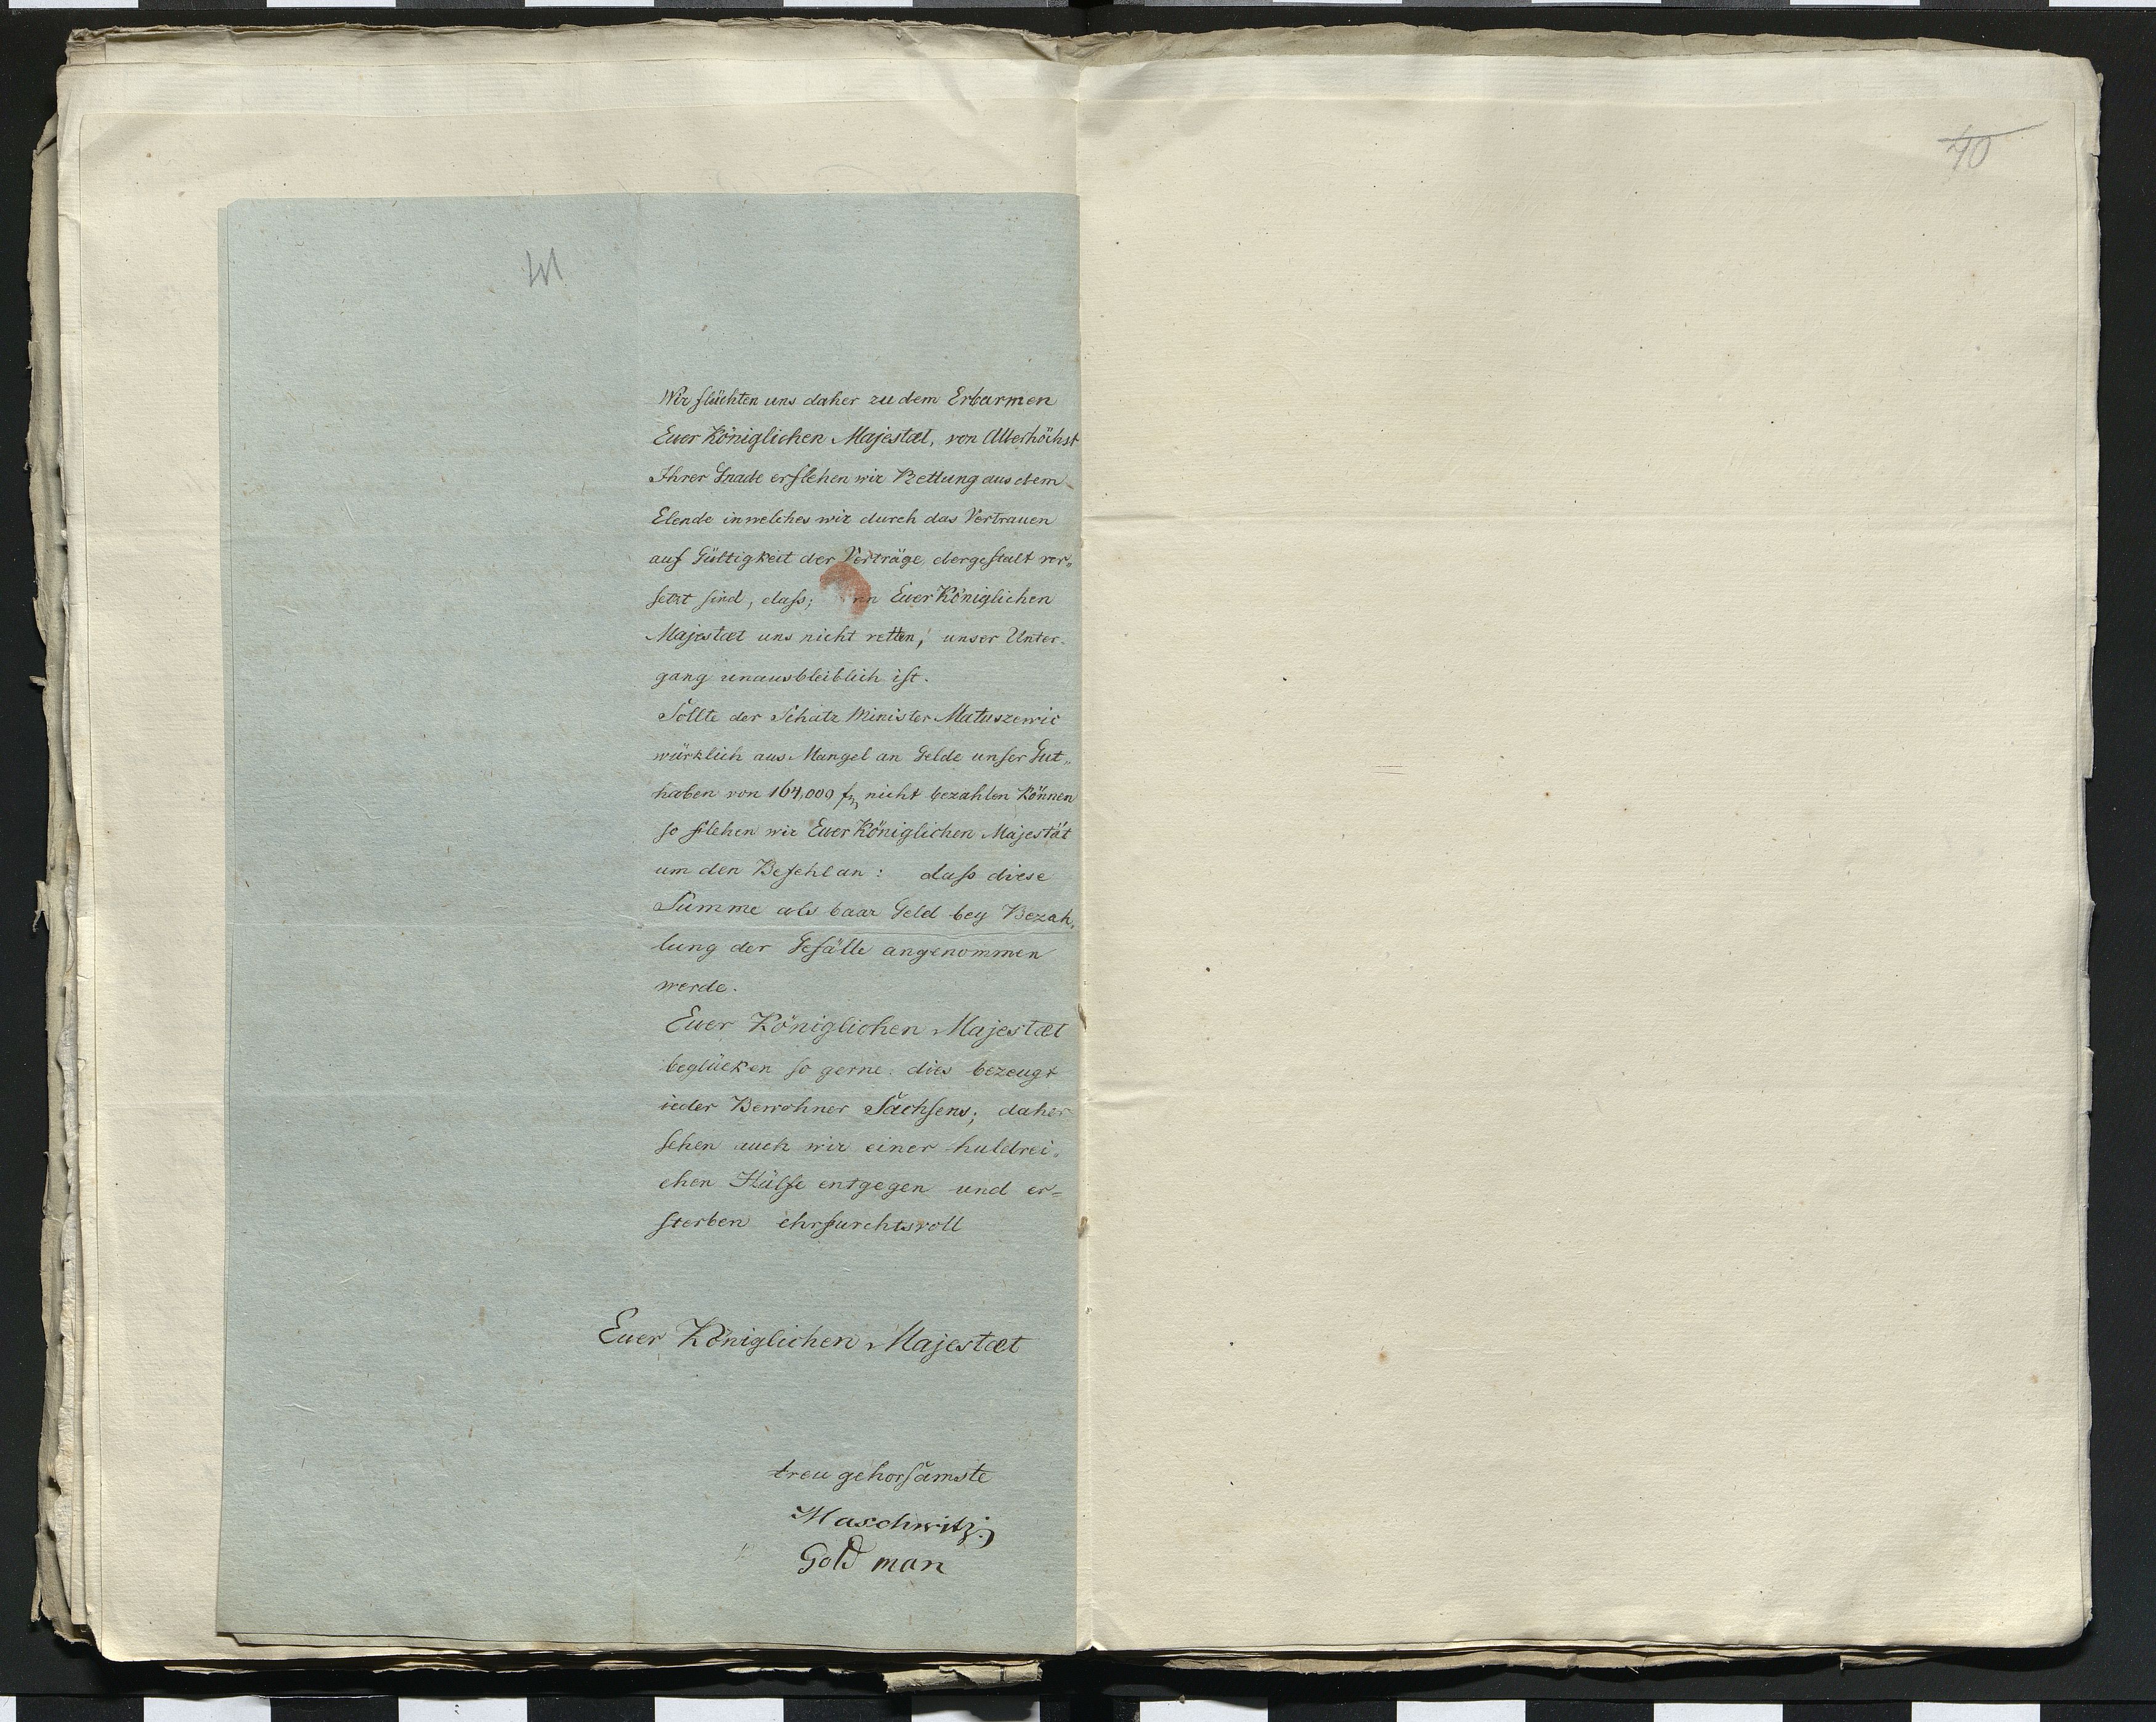 41
40
Wir flüchten uns daher zu dem Erbarmen
Euer Königlichen Majestæt, von Allerhöchst
Ihrer Gnade erflehen wir Rettung aus dem
Elende in welches wir durch das Vertrauen
auf Gültigkeit der Verträge, dergestalt ver„
setzt sind, dass; Euer Königlichen
Majestæt uns nicht retten, unser Unter-
gang unausbleiblich ist.
Sollte der Schatz Minister Matuszewic
würklich aus Mangel an Gelde unser Gut„
haben von 164,000 f nicht bezahlen können
so flehen wir Euer Königlichen Majestät
um den Befehl an: dass diese
Summe als baar Geld bey Bezah„
lung der Gefälle angenommen
werde.
Euer Königlichen Majestæt
beglücken so gerne. dies bezeugt
ieder Bewohner Sachsens; daher
sehen auch wir einer huldrei„
chen Hülfe entgegen und er=
sterben ehrfurchtsvoll
Euer Königlichen Majestæt
treu gehorsamste
Maschwitz
Goldman